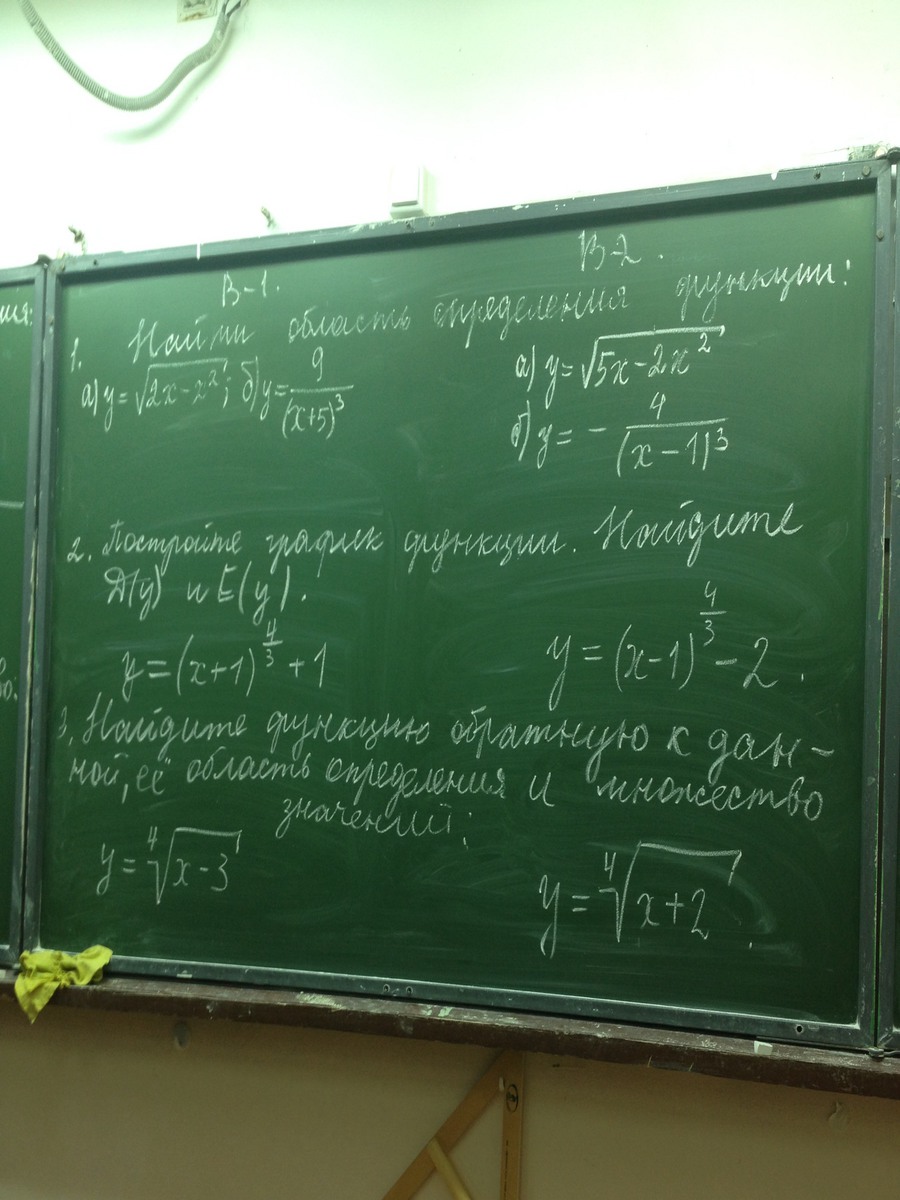 ия:
во.
В-1.
В-2.
1. Найти область определения функции:
а) y=√(2x-x²); б) y=9/(x+5)³
а) y=√(5x-2x²)
б) y= - 4/(x-1)³
2. Постройте график функции. Найдите
D(y) и E(y).
y=(x+1)^(4/3)+1
y=(x-1)^(4/3)-2.
3. Найдите функцию обратную к дан-
ной, её область определения и множество
значений:
y=⁴√(x-3)
y=⁴√(x+2).